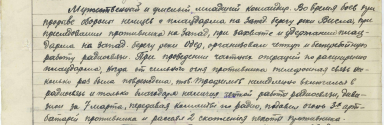 Мужественный и умелый, младший командир. Во время боев при
прорыве обороны немцев с плацдарма по запад. берегу реки Висла, при
преследовании противника на запад, при захвате и удержании плац-
дарма на запад. берегу реки Одер, организовал четкую и бесперебойную
работу радиосвязи. При проведении частных операций по расширению
плацдарма, когда от сильного огня противника телефонная связь нес-
колько раз была повреждена, тов. немедленно включался в
радиосвязь и только благодаря четкой работе радиосвязи,
за 7 марта, передавая команды по радио, подавил огонь 3х арт-
батарей противника и рассеял 2 скопления пехоты противника.